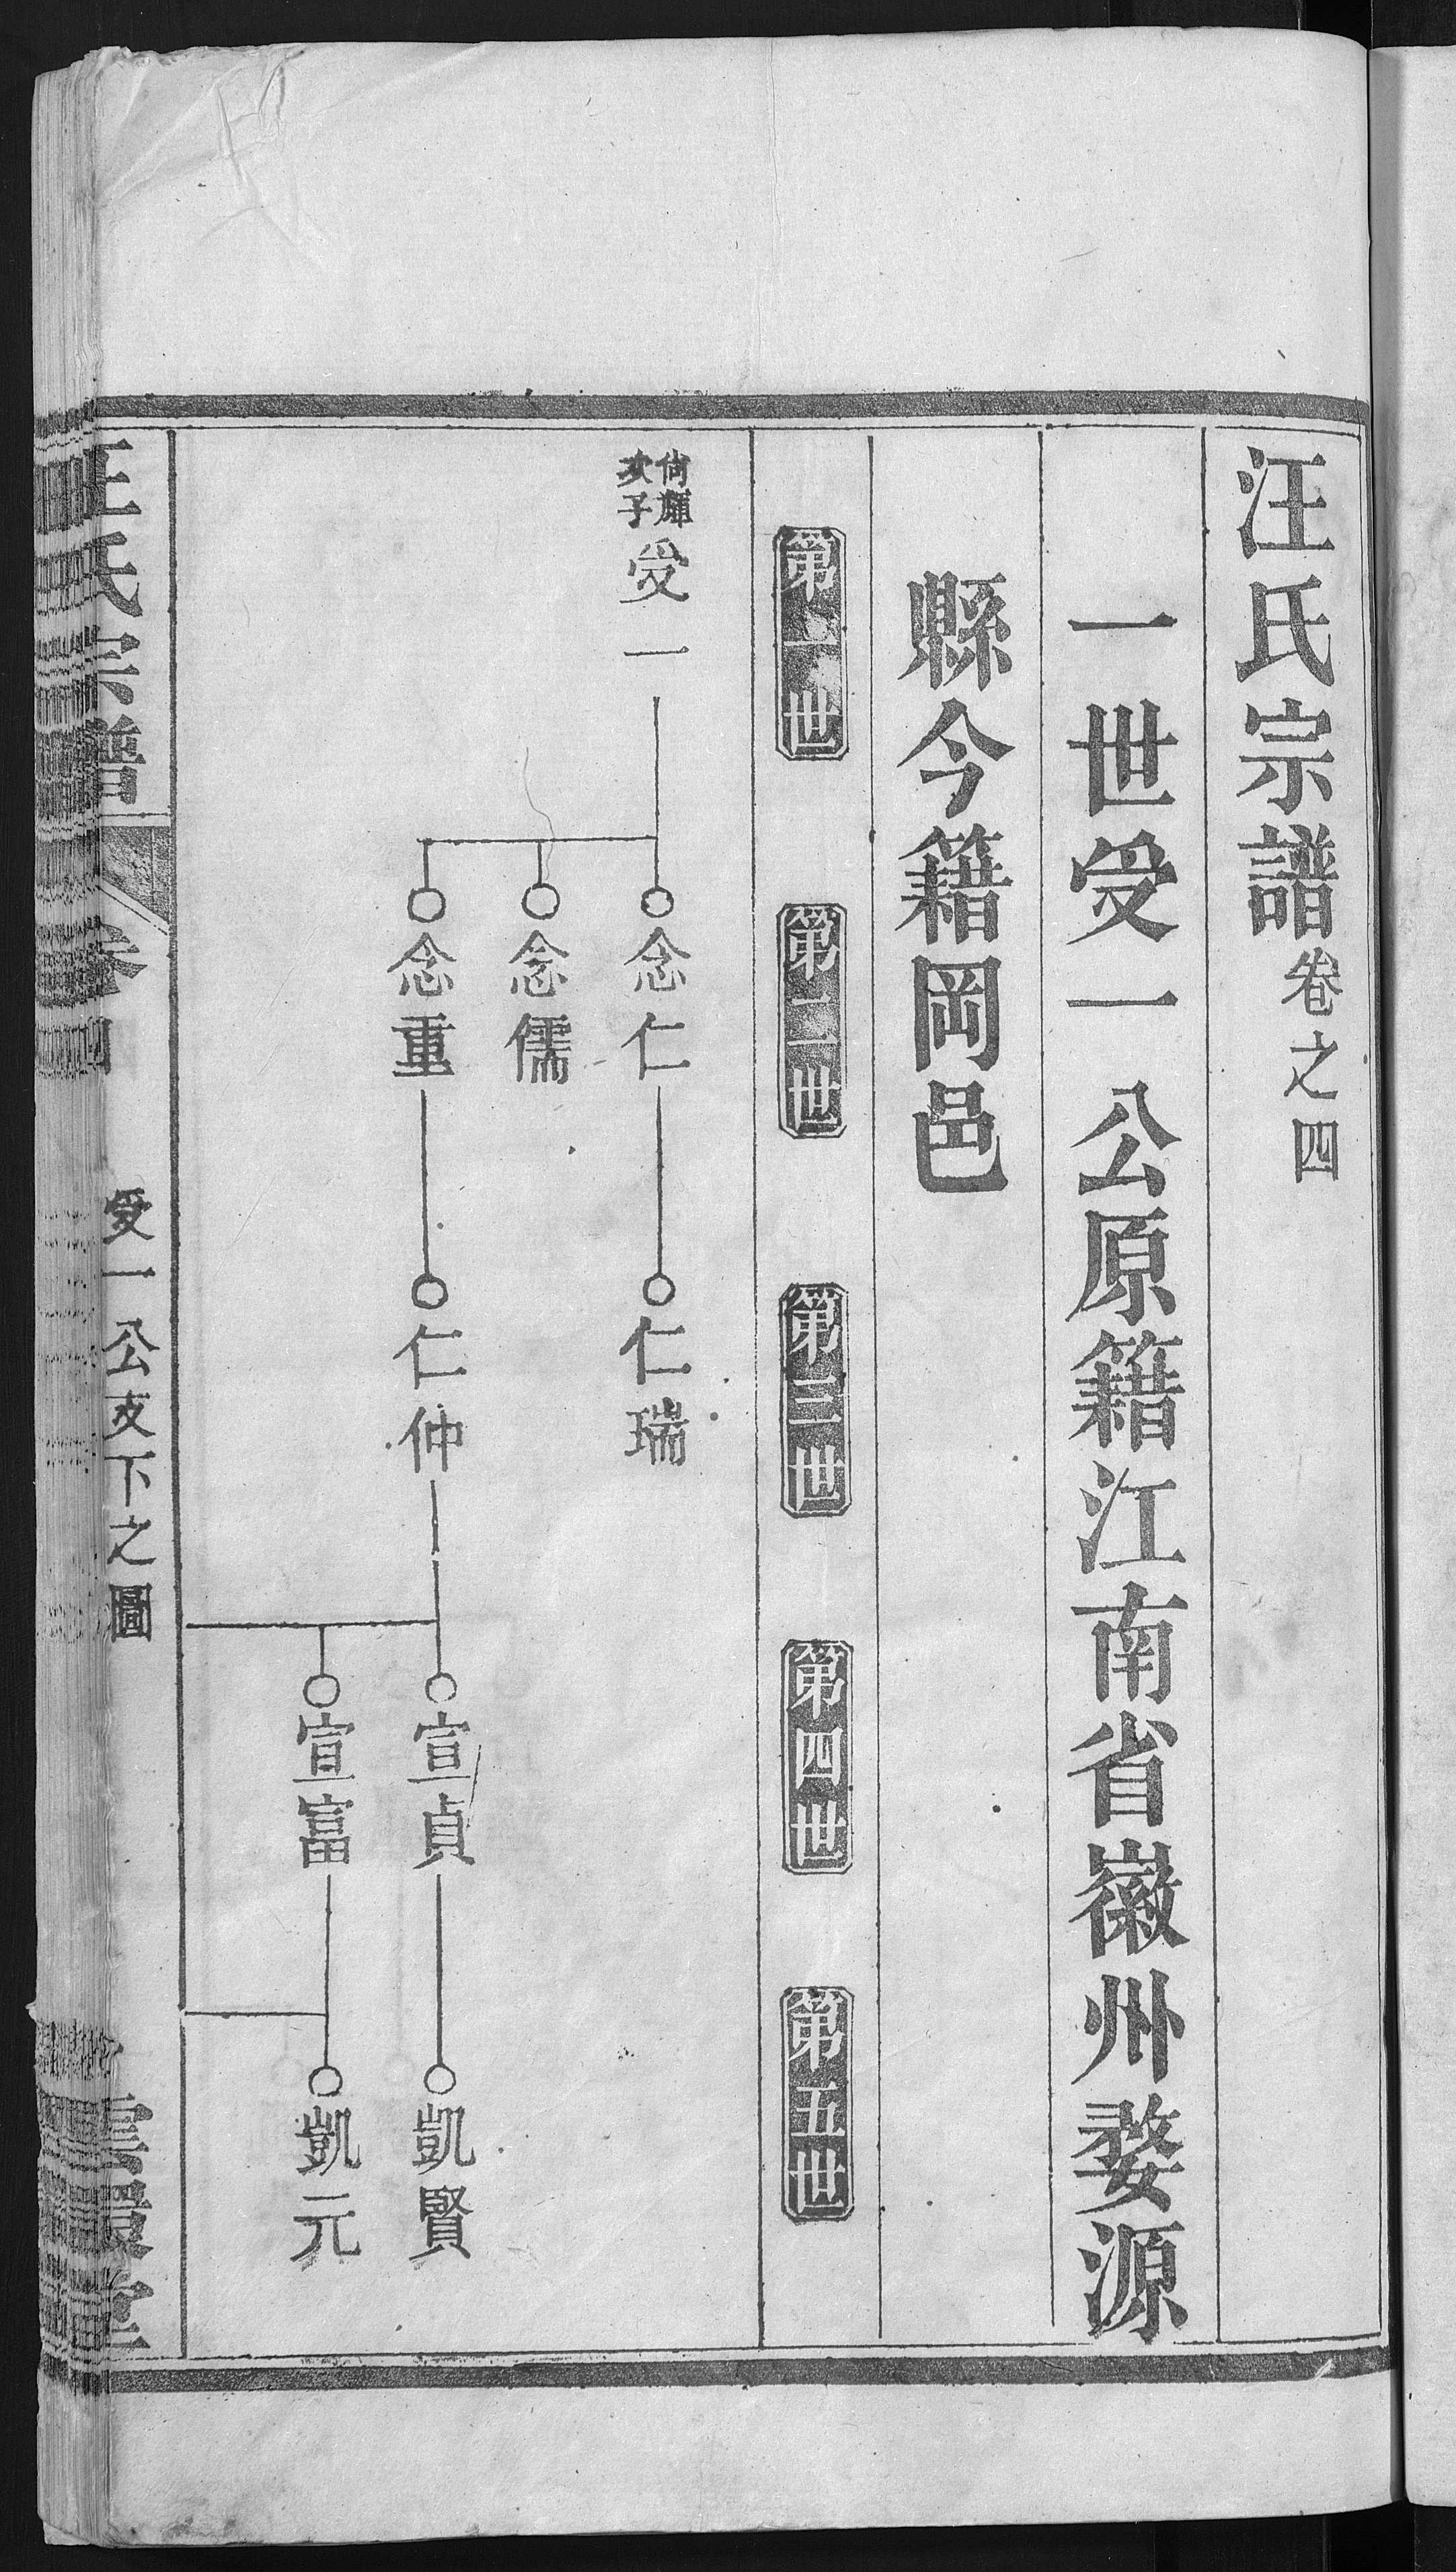 汪氏宗譜卷之四
一世受一公原籍江南省徽州婺源
縣今籍岡邑
第一世
第二世
第三世
第四世
第五世
尙輝
次子
受一
念仁
仁瑞
念儒
念重
仁仲
宣貞
凱賢
宣富
凱元
汪氏宗譜
卷四
受一公支下之圖